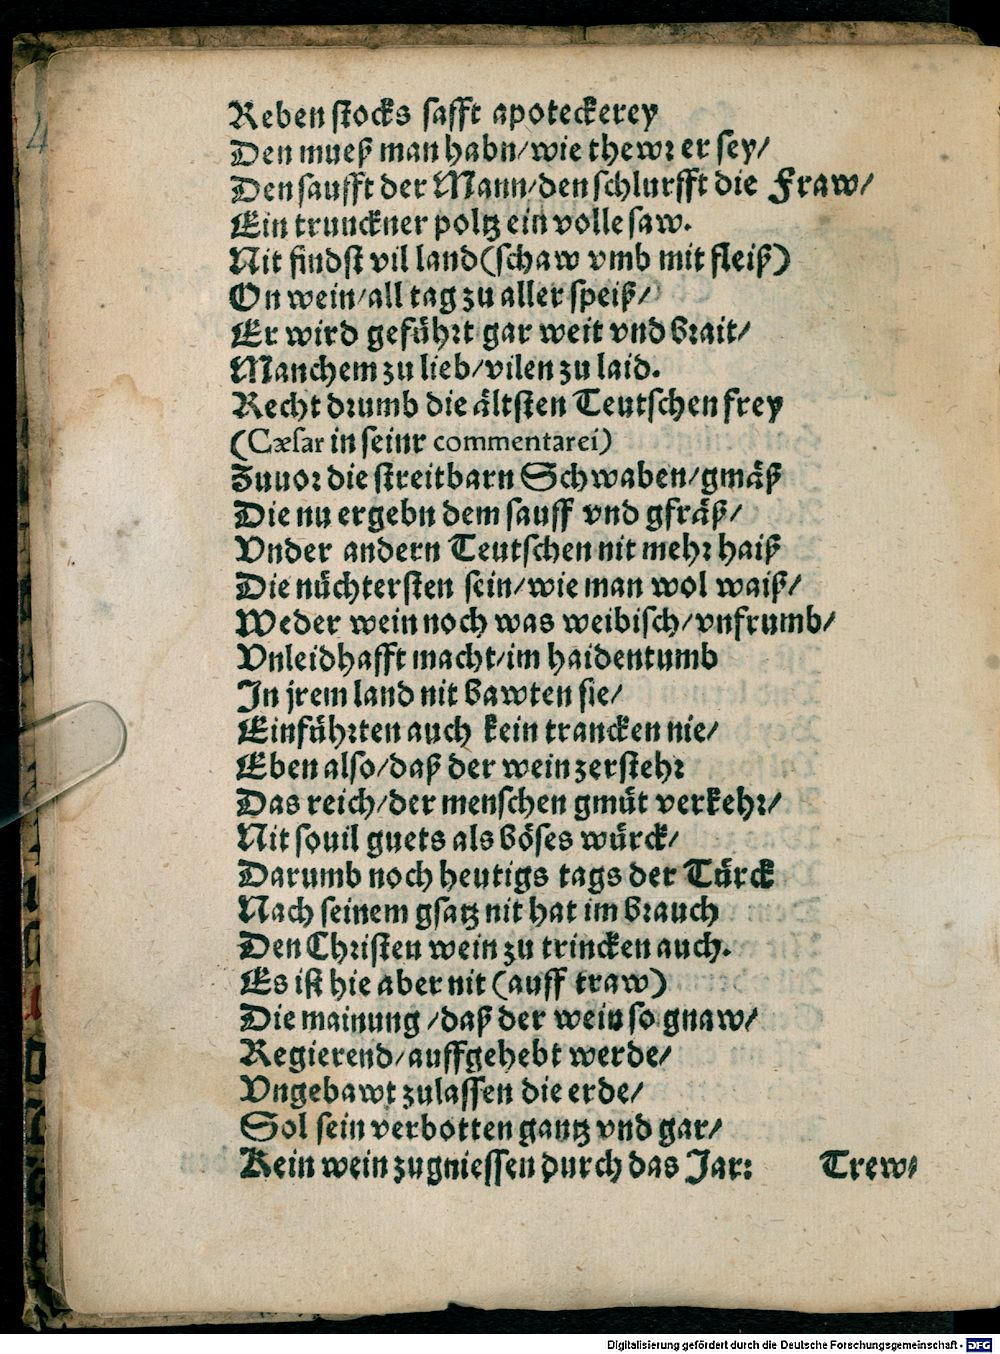 Reben stocks safft apoteckerey
Den mueß man habn/wie thewr er sey/
Den saufft der Mann/den schlurfft die Fraw/
Ein trunckner poltz ein volle saw.
Nit findst vil land(schaw vmb mit fleiß)
On wein/all tag zu aller speiß/
Er wird geführt gar weit vnd brait/
Manchem zu lieb/vilen zu laid.
Recht drumb die ältsten Teutschen frey
(Cæsar in seinr commentarei)
Zuuor die streitbarn Schwaben/gmäß
Die nu ergebn dem sauff vnd gfräß/
Vnder andern Teutschen nit mehr haiß
Die nüchtersten sein/wie man wol waiß/
Weder wein noch was weibisch/vnfrumb/
Vnleidhafft macht/im haidentumb
In jrem land nit bawten sie/
Einführten auch kein trancken nie/
Eben also/daß der wein zerstehr
Das reich/der menschen gmüt verkehr/
Nit souil guets als böses würck/
Darumb noch heutigs tags der Türck
Nach seinem gsatz nit hat im brauch
Den Christen wein zu trincken auch.
Es ist hie aber nit (auff traw)
Die mainung /daß der wein so gnaw/
Regierend/auffgehebt werde/
Vngebawt zulassen die erde/
Sol sein verbotten gantz vnd gar/
Kein wein zugniessen durch das Jar: Trew/
4
Digitalisierung gefördert durch die Deutsche Forschungsgemeinschaft - DFG